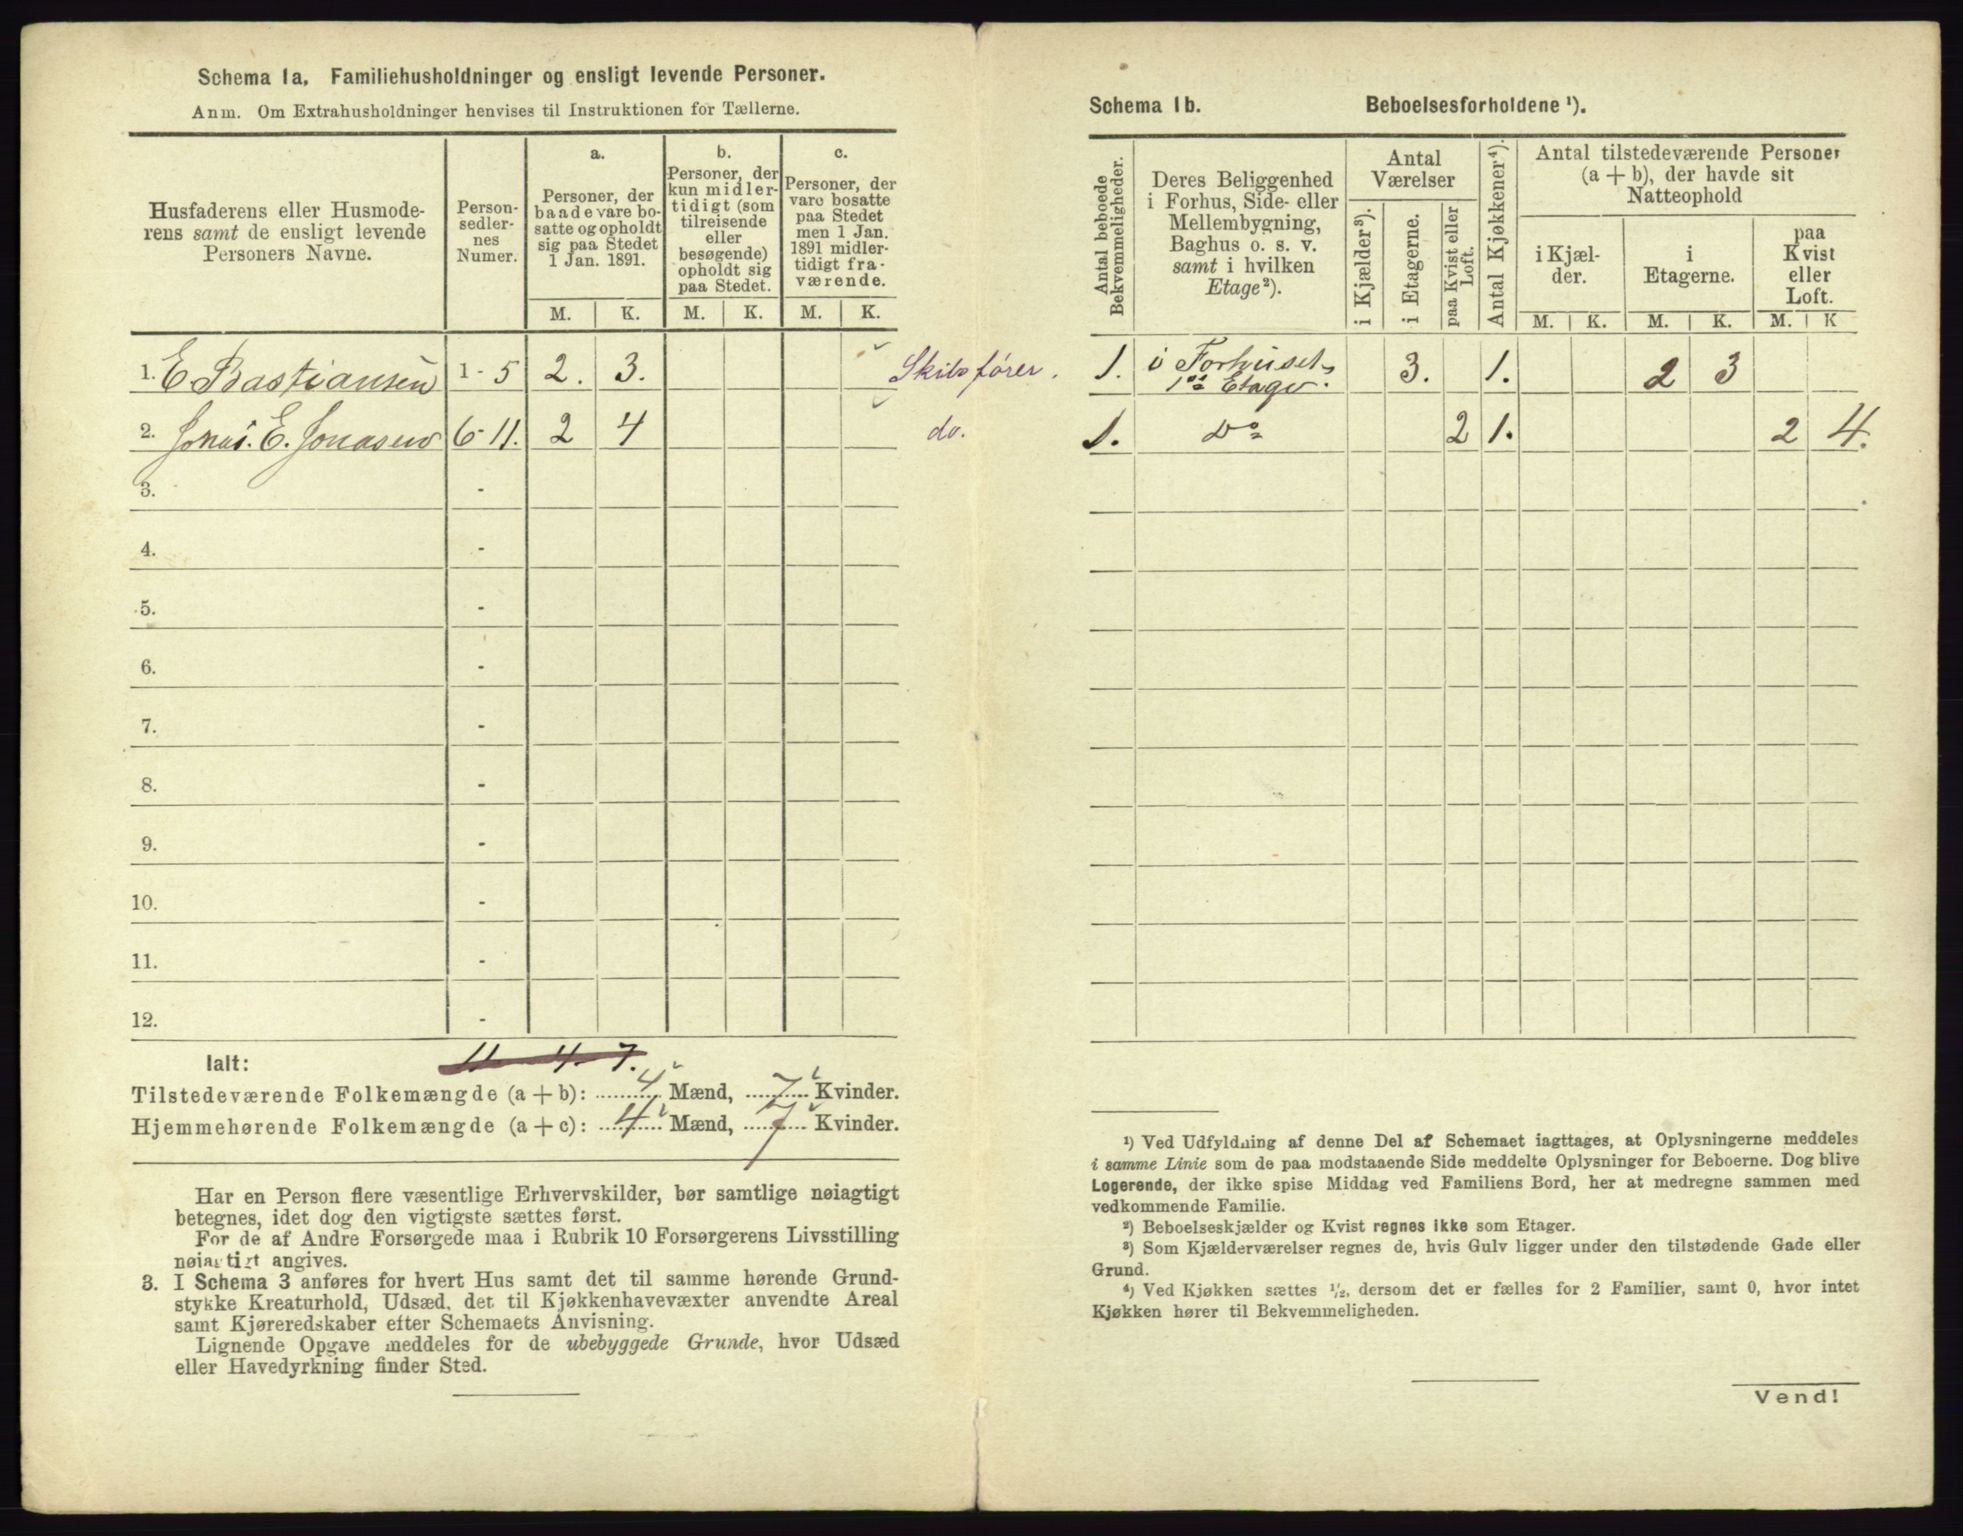 Schema 1a. Familiehusholdninger og ensligt levende Personer.
Anm. Om Extrahusholdninger henvises til Instruktionen for Tællerne.
Husfaderens eller Husmode-
rens samt de ensligt levende
Personers Navne.
Person-
sedler-
nes
Numer.
a.
Personer, der
baade vare bo-
satte og opholdt
sig paa Stedet
1 Jan. 1891.
b.
Personer, der
kun midler-
tidigt (som
tilreisende
eller
besøgende)
opholdt sig
paa Stedet.
c.
Personer, der
vare bosatte
paa Stedet
men 1 Jan.
1891 midler-
tidigt fra-
værende.
M. K. M. K. M. K.
1. E Bastiansen 1 - 5 2. 3. Skibsfører.
2. Jonas. E. Jonasen 6 - 11. 2 4 do.
3. -
4. -
5. -
6. -
7. -
8. -
9. -
10. -
11. -
12. -
Ialt: 11 4. 7.
Tilstedeværende Folkemængde (a + b): 4 Mænd, 7 Kvinder.
Hjemmehørende Folkemængde (a + c): 4 Mænd, 7 Kvinder.
Har en Person flere væsentlige Erhvervskilder, bør samtlige nøiagtigt
betegnes, idet dog den vigtigste sættes først.
For de af Andre Forsørgede maa i Rubrik 10 Forsørgerens Livsstilling
nøiagtigt angives.
3. I Schema 3 anføres for hvert Hus samt det til samme hørende Grund-
stykke Kreaturhold, Udsæd, det til Kjøkkenhavevæxter anvendte Areal
samt Kjøreredskaber efter Schemaets Anvisning.
Lignende Opgave meddeles for de ubebyggede Grunde, hvor Udsæd
eller Havedyrkning finder Sted.
Schema 1b. Beboelsesforholdene ¹).
Antal beboede
Bekvemmeligheder.
Deres Beliggenhed
i Forhus, Side- eller
Mellembygning,
Baghus o. s. v.
samt i hvilken
Etage²).
Antal
Værelser
i Kjælder³).
i Etagerne.
paa Kvist eller
Loft.
Antal Kjøkkener⁴).
Antal tilstedeværende Personer
(a + b), der havde sit
Natteophold
i Kjæl-
der.
i
Etagerne.
paa
Kvist
eller
Loft.
M. K. M. K. M. K
1. i Forhuset 3. 1. 2 3
1ste Etage.
1. Do 2 1. 2 4.
¹) Ved Udfyldning af denne Del af Schemaet iagttages, at Oplysningerne meddeles
i samme Linie som de paa modstaaende Side meddelte Oplysninger for Beboerne. Dog blive
Logerende, der ikke spise Middag ved Familiens Bord, her at medregne sammen med
vedkommende Familie.
²) Beboelseskjælder og Kvist regnes ikke som Etager.
³) Som Kjælderværelser regnes de, hvis Gulv ligger under den tilstødende Gade eller
Grund.
⁴) Ved Kjøkken sættes ½, dersom det er fælles for 2 Familier, samt 0, hvor intet
Kjøkken hører til Bekvemmeligheden.
Vend!